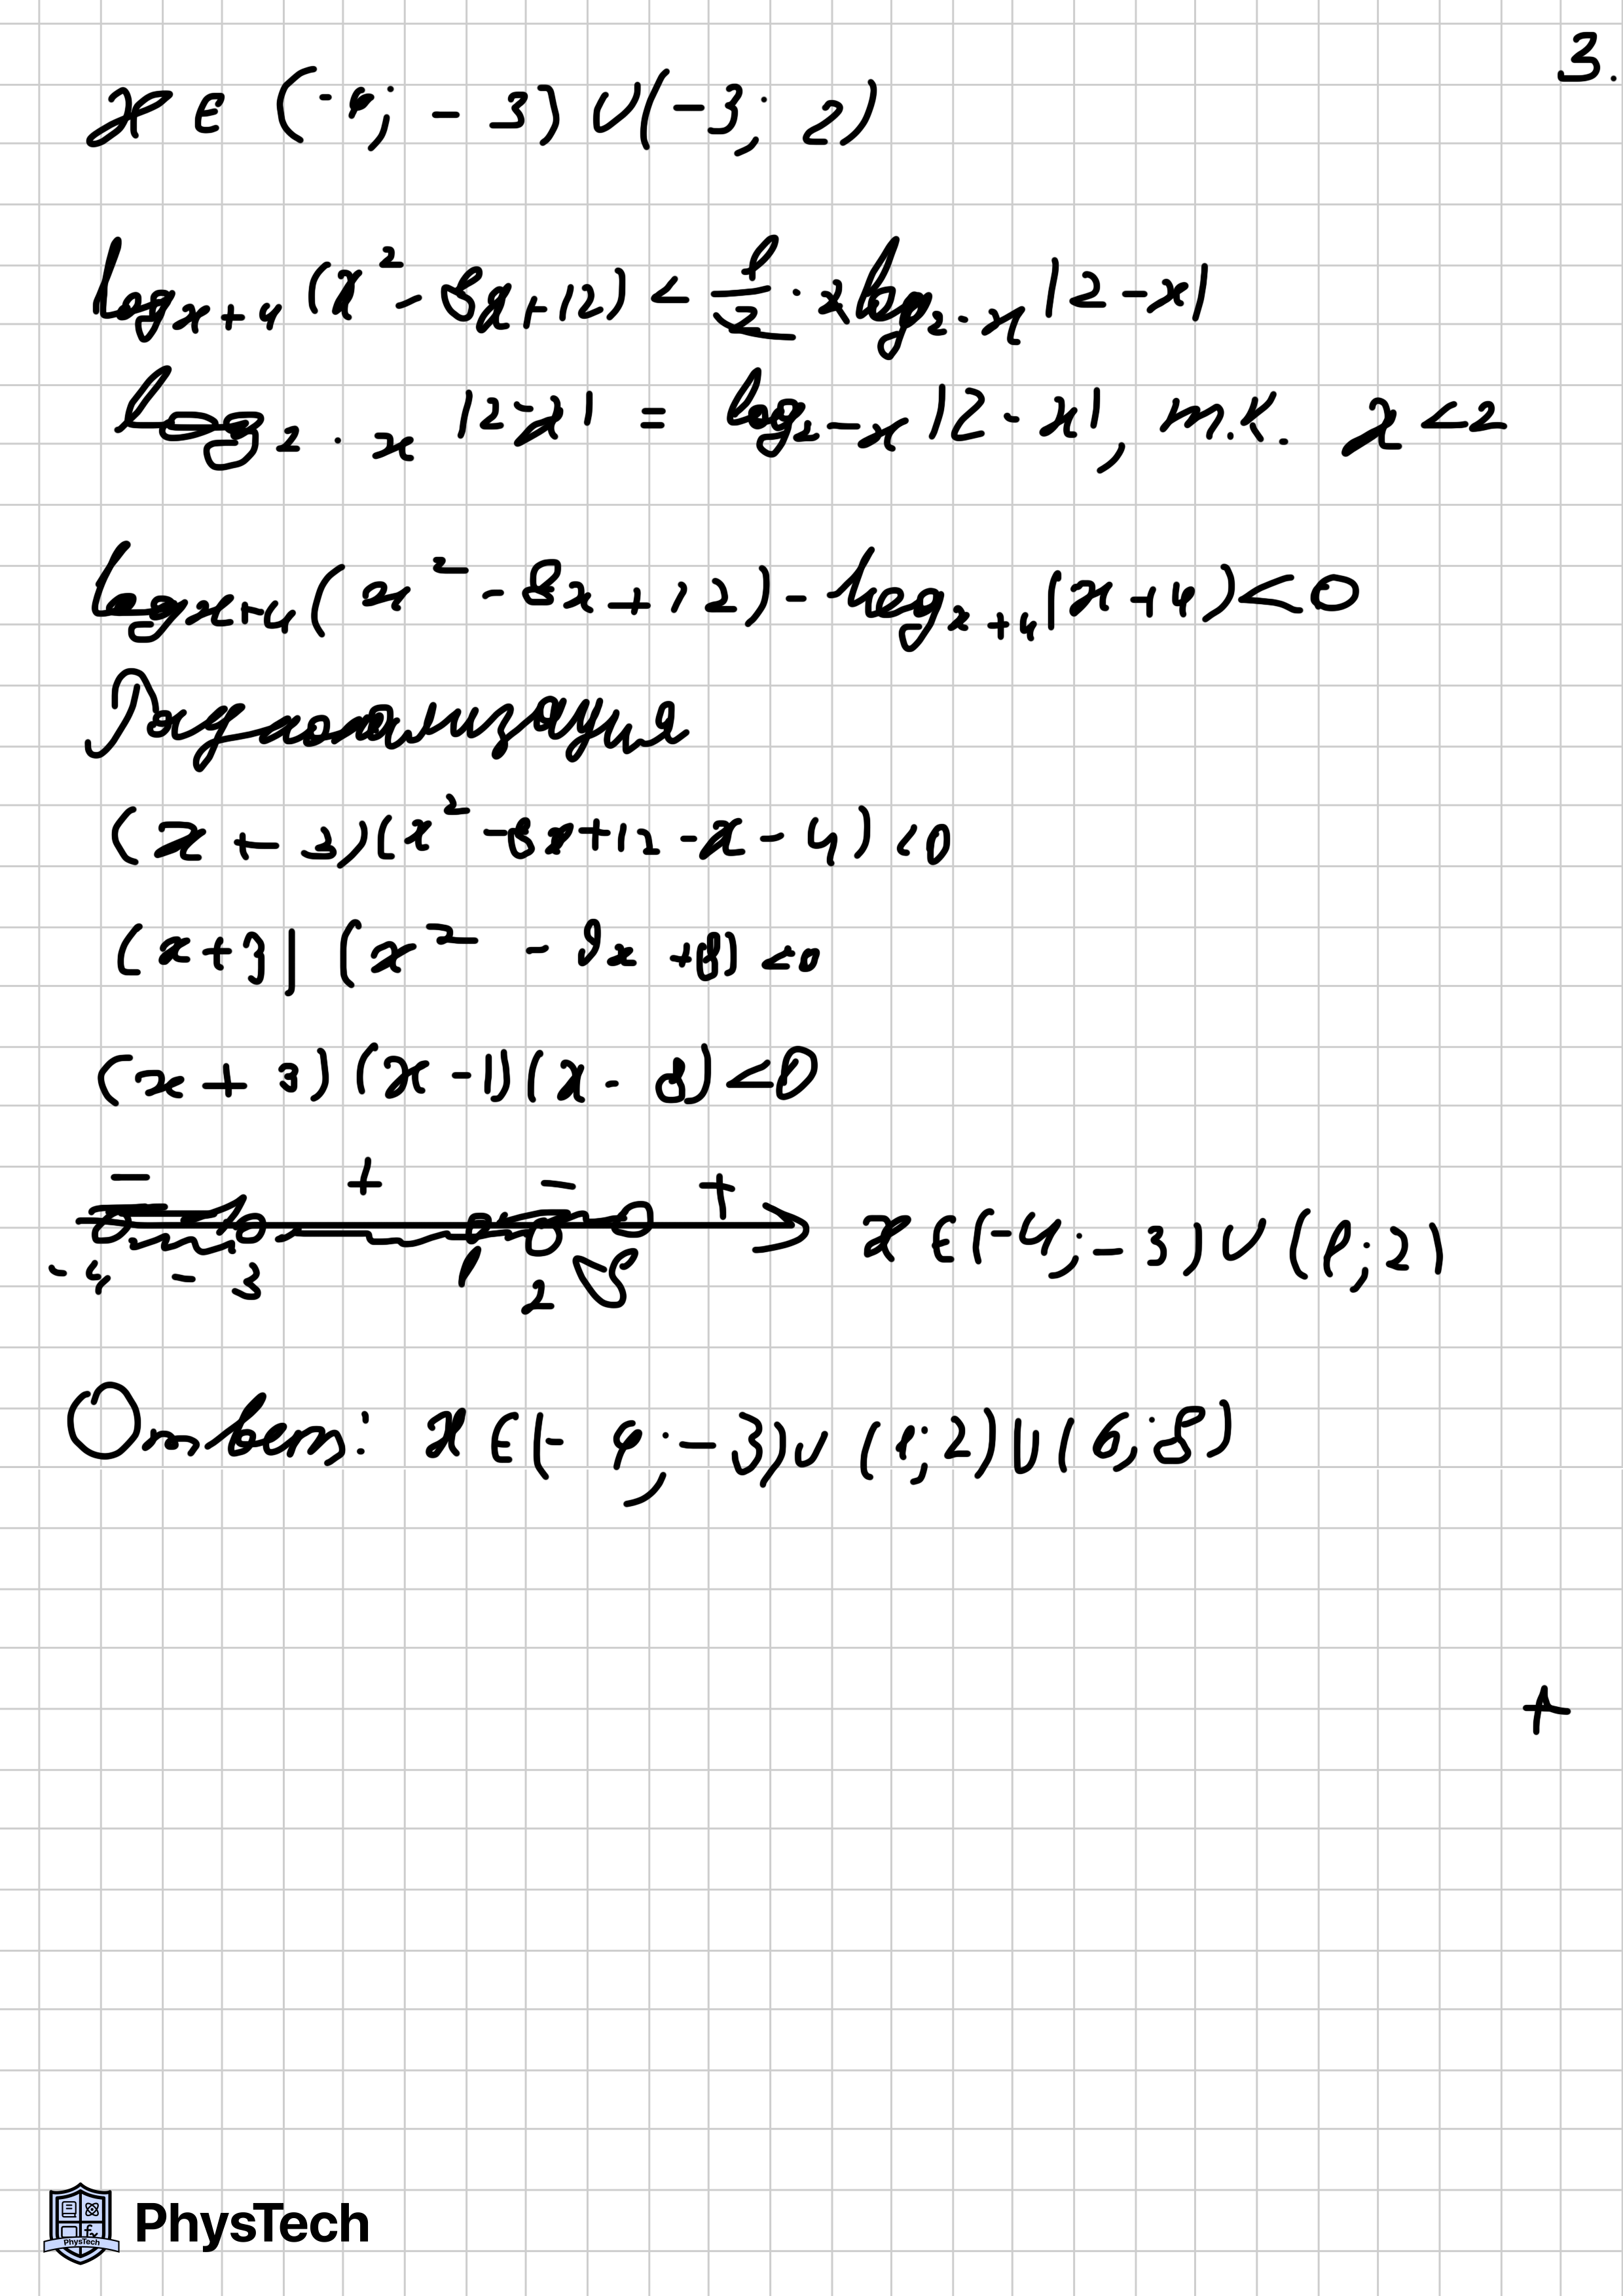 3.
x ∈ (-4; -3) ∪ (-3; 2)
log_{x+4} (x² - 8x + 12) < 1/2 · 2log_{2-x} |2-x|
log_{2-x} |2-x| = log_{2-x} |2-x|, т.к. x < 2
log_{x+4} (x² - 8x + 12) - log_{x+4} (x+4) < 0
Рационализация
(x + 3)(x² - 8x + 12 - x - 4) < 0
(x+3) (x² - 9x + 8) < 0
(x + 3)(x - 1)(x - 8) < 0
- + - +
-4 -3 1 2 8 x ∈ (-4; -3) ∪ (1; 2)
Ответ: x ∈ (-4; -3) ∪ (1; 2) ∪ (6; 8)
+
PhysTech
PhysTech